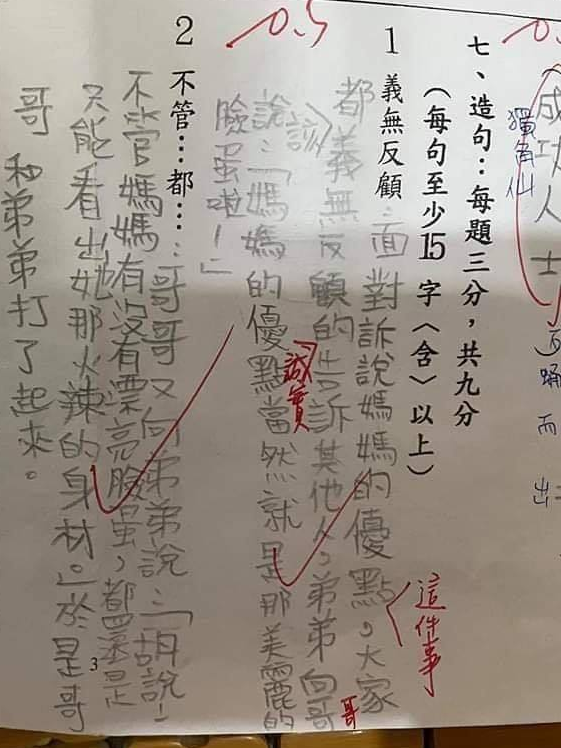 成功人士
獨角仙
踴而出
七、造句：每題三分，共九分
（每句至少15字〈含〉以上）
1 義無反顧：面對訴說媽媽的優點，大家
這件事
都義無反顧的告訴其他人，弟弟向哥
哥
誠實
說：「媽媽的優點當然就是那美麗的
臉蛋啦！」
0.5
2 不管…都…：哥哥又向弟弟說：「胡說！
不管媽媽有沒有漂亮臉蛋，都還是
只能看出她那火辣的身材。」於是哥
哥和弟弟打了起來。
3